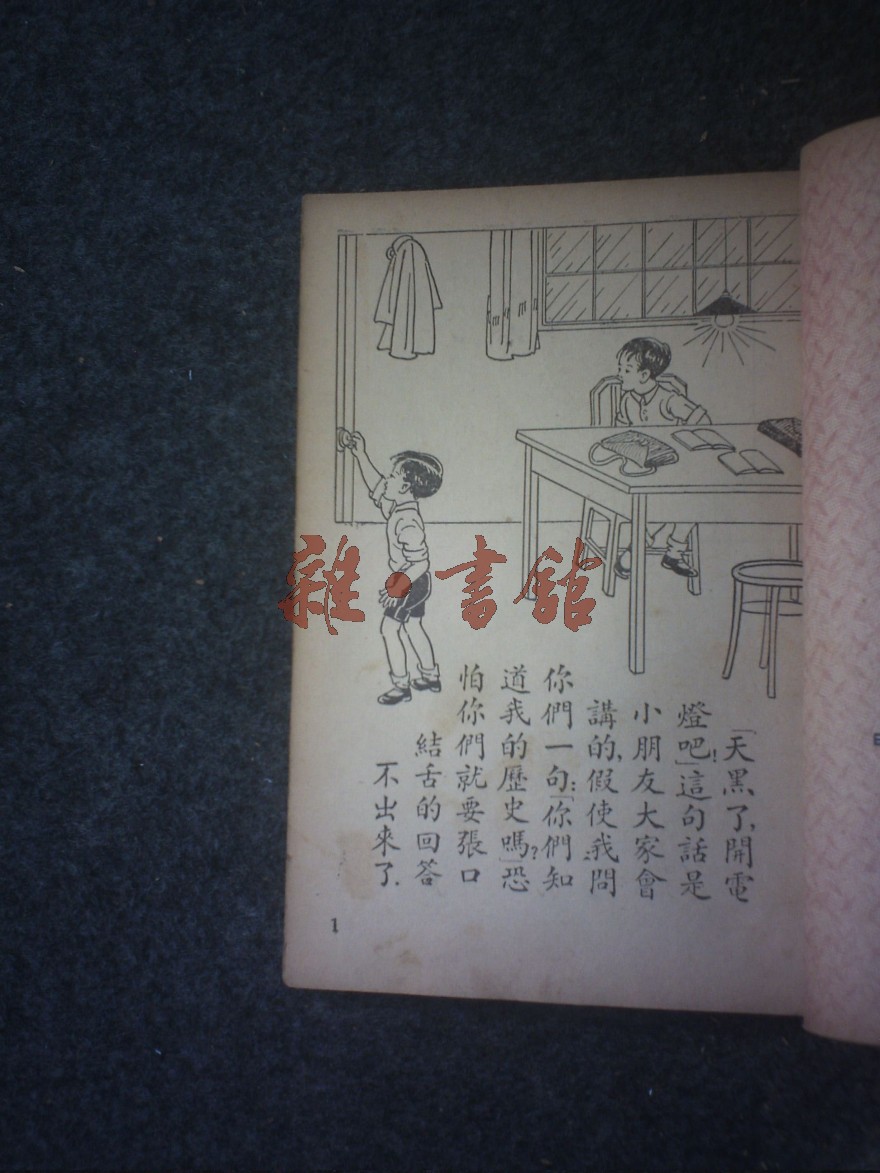 「天黑了,開電
燈吧!」這句話是
小朋友大家會
講的,假使我問
你們一句:「你們知
道我的歷史嗎?」恐
怕你們就要張口
結舌的回答
不出來了.
1
雜·書館